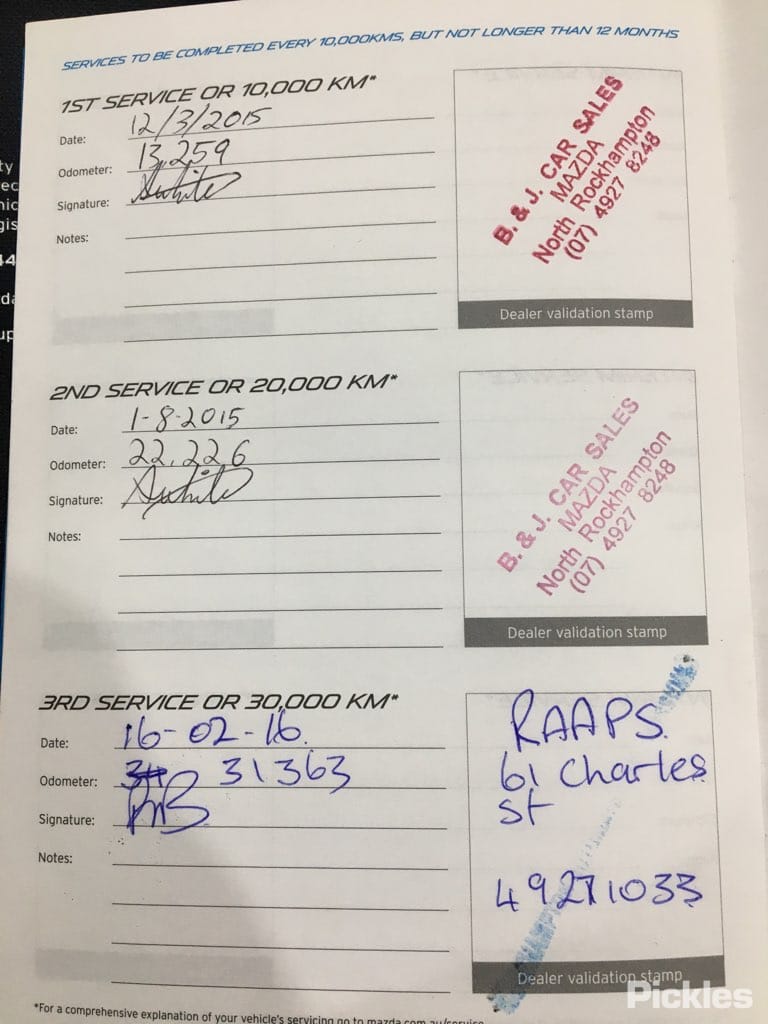 SERVICES TO BE COMPLETED EVERY 10,000KMS, BUT NOT LONGER THAN 12 MONTHS
1ST SERVICE OR 10,000 KM*
Date: 12/3/2015
Odometer: 13,259
Signature: SWhite
Notes:
B. & J. CAR SALES
MAZDA
North Rockhampton
(07) 4927 8248
Dealer validation stamp
2ND SERVICE OR 20,000 KM*
Date: 1-8-2015
Odometer: 22,226
Signature: SWhite
Notes:
B. & J. CAR SALES
MAZDA
North Rockhampton
(07) 4927 8248
Dealer validation stamp
3RD SERVICE OR 30,000 KM*
Date: 16-02-16.
Odometer: 31363
Signature:
Notes:
RAAPS.
61 Charles
st
49271033
Dealer validation stamp
*For a comprehensive explanation of your vehicle's servicing go to mazda.com.au/service
Pickles